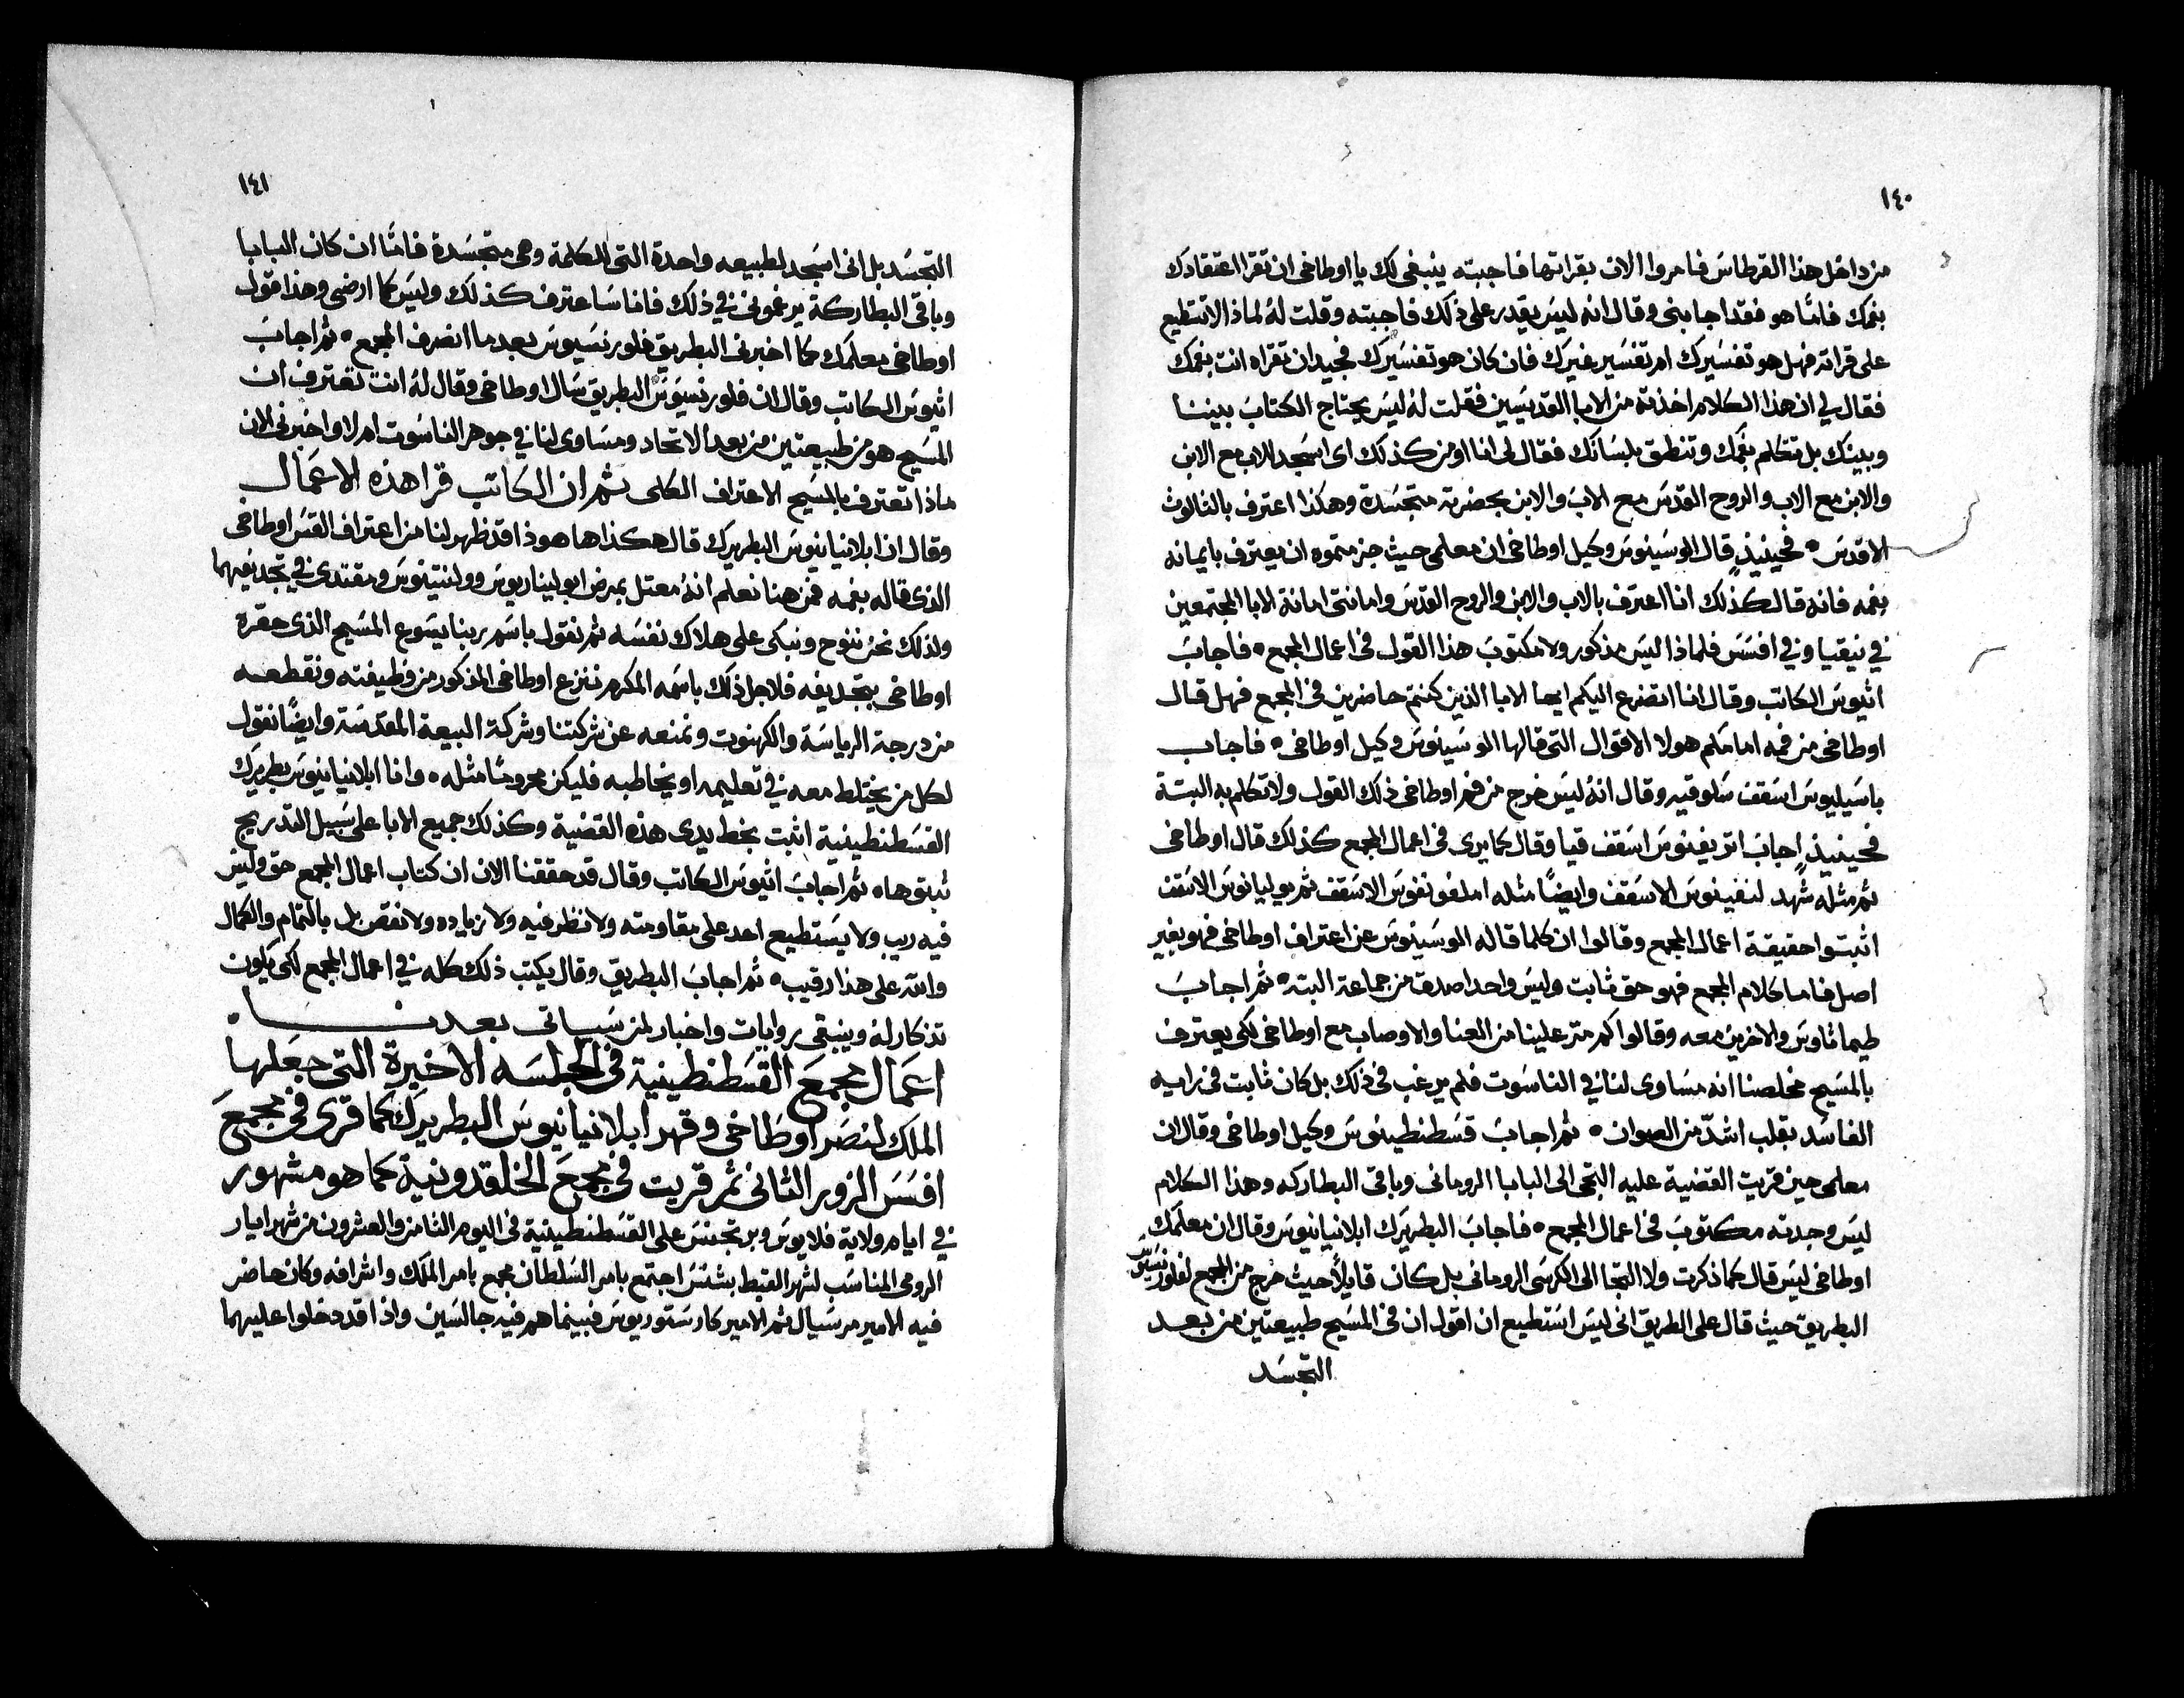 ١٤٠
من داخل هذا القرطاس فامروا الان بقراتها فاجبته ينبغي لك يا اوطاخي ان تقرا اعتقادك
بفمك فامّا هو فقد اجابني وقال انه ليس يقدر على ذلك فاجبته وقلت لهُ لماذا لا تستطيع
على قراته فهل هو تفسيرك ام تفسير غيرك فان كان هو تفسيرك فجيد ان تقراه انت بفمك
فقال لي ان هذا الكلام اخذته من الابا القديسين فقلت لهُ ليس يحتاج الكتاب بيننا
وبينك بل تتكلم بفمك وتنطق بلسانك فقال لي انا اومن كذلك اي اسجد للاب مع الابن
والابن مع الاب والروح القدس مع الاب والابن بحضرته متجسدة وهكذا اعترف بالثالوث
الاقدس ۰ فحينيذٍ قال الوسينوس وكيل اوطاخي ان معلمي حيث جزمتموه ان يعترف بايمانه
بفمه فانه قال كذلك انا اعترف بالاب والابن والروح القدس وامانتي امانة الابا المجتمعين
في نيقيا وفي افسس فلماذا ليس مذكور ولا مكتوب هذا القول في اعمال المجمع ۰ فاجاب
اثيوس الكاتب وقال انا اتضرع اليكم ايها الابا الذين كنتم حاضرين في المجمع فهل قال
اوطاخي من فمه امامكم هولا الاقوال التي قالها الوسينوس وكيل اوطاخي ۰ فاجاب
باسيليوس اسقف سلوقيه وقال انهُ ليس خرج من فم اوطاخي ذلك القول ولا تكلم به البتة
فحينيذٍ اجاب اتريفينوس اسقف قيا وقال كما يرى في اعمال المجمع كذلك قال اوطاخي
ثم مثله شهد لنفينوس الاسقف وايضًا مثله املفونفوس الاسقف ثم يوليانوس الاسقف
اثبتوا حقيقة اعمال المجمع وقالوا ان كلما قاله الوسينوس عن اعتراف اوطاخي فهو بغير
اصل فاما كلام المجمع فهو حق ثابت وليس واحد اصدق من جماعة البته ۰ ثم اجاب
طيماثاوس والاخرين معه وقالوا كم متر علينا من العنا والاوصاب مع اوطاخي لكي يعترف
بالمسيح مخلصنا انه مساوى لنا في الناسوت فلم يرغب في ذلك بل كان ثابت في رايه
الفاسد بقلب اشدّ من الصوان ۰ ثم اجاب قسطنطينوس وكيل اوطاخي وقال ان
معلمي حين قريت القضية عليه التجى الى البابا الروماني وباقي البطاركه وهذا الكلام
ليس وجدته مكتوب في اعمال المجمع ۰ فاجاب البطريرك ابلانيانيوس وقال ان معلمك
اوطاخي ليس قال كما ذكرت ولا التجا الى الكرسي الروماني بل كان قايلاً حيث خرج من المجمع لفلورنسيوس
البطريق حيث قال على الطريق اني ليس استطيع ان اقول ان في المسيح طبيعتين من بعد
التجسد
١٤١
التجسد بل اني اسجد لطبيعه واحدة التي للكلمة وهي متجسدة فامّا ان كان البابا
وباقي البطاركة يرغموني في ذلك فانا ساعترف كذلك وليس كما ارضى وهذا قول
اوطاخي معلمك كما اخبرني البطريق فلورنسيوس بعد ما انصرف المجمع ۰ ثم اجاب
اثيوس الكاتب وقال ان فلورنسيوس البطريق سال اوطاخي وقال لهُ انت تعترف ان
المسيح هو من طبيعتين من بعد الاتحاد ومساوى لنا في جوهر الناسوت ام لا واخبرني الان
ماذا تعترف بالمسيح الاعتراف الكلى ثم ان الكاتب قرا هذه الاعمال
وقال ان ابلانيانيوس البطريرك قال هكذا ها هوذا قد ظهر لنا من اعتراف القس اوطاخي
الذي قاله بفمه فمن هنا نعلم انهُ معتل بمرض ابوليناريوس ووالنتينوس ومقتدى في تجديفهما
ولذلك نحن ننوح ونبكي على هلاك نفسه ثم نقول باسم ربنا يسوع المسيح الذي حقره
اوطاخي بتجديفه فلاجل ذلك باسمه المكرم ننزع اوطاخي المذكور من وظيفته ونقطعه
من درجة الرياسة والكهنوت ونمنعه عن شركتنا وشركة البيعة المقدسة وايضًا نقول
لكل من يختلط معه في تعليمه او يخاطبه فليكن محرومًا مثله ۰ وانا ابلانيانيوس بطريرك
القسطنطينية اثبت بخط يدى هذه القضية وكذلك جميع الابا على سبيل التدريج
ثبتوها ۰ ثم اجاب اثيوس الكاتب وقال قد حققنا الان ان كتاب اعمال المجمع حق وليس
فيه ريب ولا يستطيع احد على مقاومته ولا نظر فيه ولا زياده ولا نقص بل بالتمام والكمال
والله على هذا رقيب ۰ ثم اجاب البطريق وقال يكتب ذلك كله في اعمال المجمع لكي يكون
تذكار لهُ وينبقى روايات واخبار لمن سياتى بعدنا ۰
اعمال مجمع القسطنطينية في الجلسه الاخيرة التي جعلها
الملك لنصر اوطاخي وقهر ابلانيانيوس البطريرك كما قرى في مجمع
افسس الزور الثاني ثم قريت في مجمع الخلقدونية كما هو مشهور
في ايام ولاية فلايوس وبرتجنس على القسطنطينية في اليوم الثامن والعشرون من شهر ايار
الرومي المناسب لشهر القبط بشنس اجتمع بامر السلطان مجمع بامر الملك واشرافه وكان حاضر
فيه الامير مرسيال ثم الامير كارستوريوس فبينما هم فيه جالسين واذا قد دخلوا عليهما